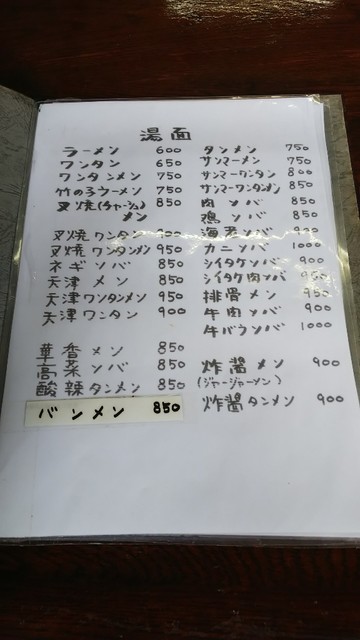 湯面
ラーメン 600
ワンタン 650
ワンタンメン 750
竹の子ラーメン 750
叉焼(チャーシュー)メン 850
叉焼ワンタン 900
叉焼ワンタンメン 950
ネギソバ 850
天津メン 850
天津ワンタンメン 950
天津ワンタン 900
華香メン 850
高菜ソバ 850
酸辣タンメン 850
バンメン 850
タンメン 750
サンマーメン 750
サンマーワンタン 800
サンマーワンタンメン 850
肉ソバ 850
鶏ソバ 850
海老ソバ 900
カニソバ 1000
シイタケソバ 900
シイタケ肉ソバ
排骨メン 950
牛肉ソバ 900
牛バラソバ 1000
炸醤メン 900
(ジャージャーメン)
炸醤タンメン 900